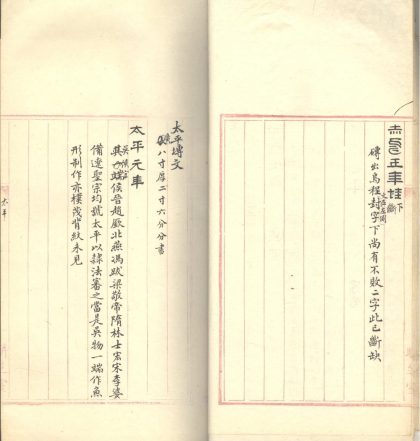 赤烏五年 下斷
磚出烏程
封字下尚有不敗二字此已斷缺
太平塼文
八寸厚二寸六分分書
太平元年
吳侯官侯晉趙廞北燕馮跋梁敬帝隋林士宏宋李婆
備遼聖宗均號太平以隸法審之當是吳物一端作魚
形制作亦樸茂背紋未見
太平